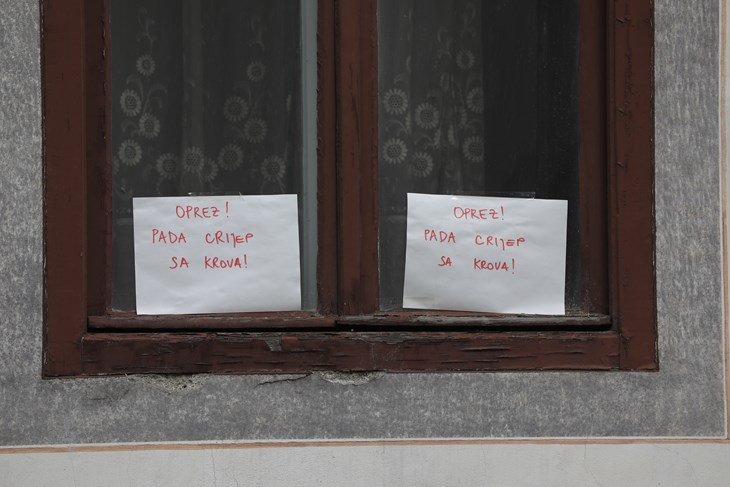 OPREZ!
PADA CRIJEP
SA KROVA!
OPREZ!
PADA CRIJEP
SA KROVA!